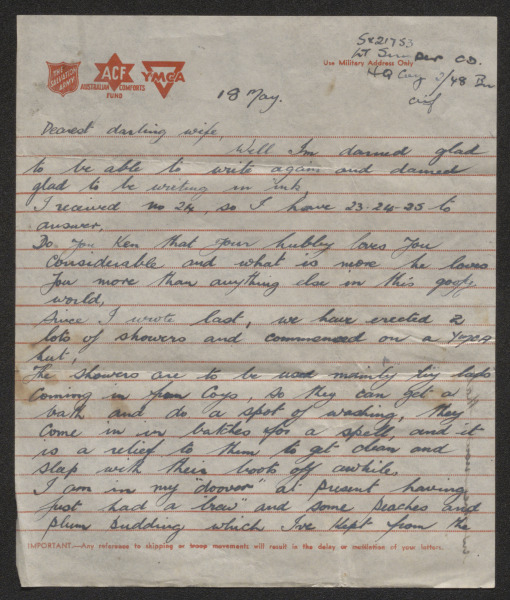 SX21753
Lt CD.
Use Military Address Only
HQ Coy 2/48 Bn
aif
THE SALVATION ARMY
ACF
AUSTRALIAN COMFORTS FUND
YMCA
18 May.
Dearest darling wife,
Well I'm darned glad
to be able to write again and darned
glad to be writing in ink,
I received no 24, so I have 23-24-25 to
answer,
Do you Ken that your hubby loves you
considerable and what is more he loves
you more than anything else in this goofy
world,
Since I wrote last, we have erected 2
lots of showers and commenced on a YMCA
hut,
The showers are to be used mainly by lads
coming in from Coys, so they can get a
bath and do a spot of washing, they
come in in batches for a spell, and it
is a relief to them to get clean and
sleep with their boots off awhile,
I am in my "doover" at present having
just had a "brew" and some peaches and
plum pudding which I've kept from the
IMPORTANT—Any reference to shipping or troop movements will result in the delay or mutilation of your letters.